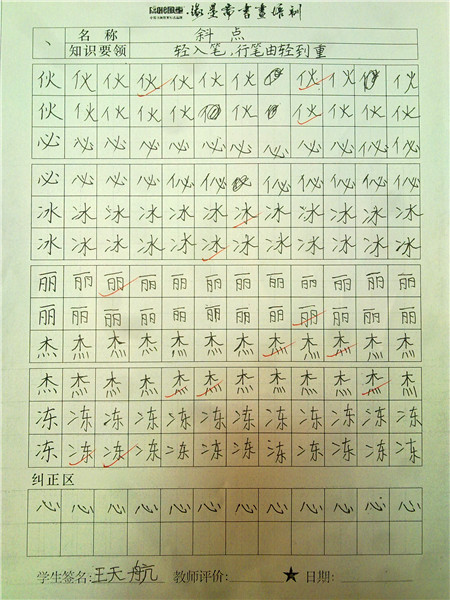 書畫培訓
丶 名称 斜点
知识要领 轻入笔,行笔由轻到重
伙伙伙伙伙伙伙伙伙伙
伙伙伙伙伙伙伙伙伙伙
必必必必必必必必必必必必
必必必必必必必必必必必
冰冰冰冰冰冰冰冰冰冰冰冰
冰冰冰冰冰冰冰冰冰冰冰冰
丽丽丽丽丽丽丽丽丽丽丽丽
丽丽丽丽丽丽丽丽丽丽丽丽
杰杰杰杰杰杰杰杰杰杰杰杰
杰杰杰杰杰杰杰杰杰杰杰杰
冻冻冻冻冻冻冻冻冻冻冻冻
冻冻冻冻冻冻冻冻冻冻冻冻
纠正区
心心心心心心心心心心心心
学生签名:王天航 教师评价: ★ 日期: